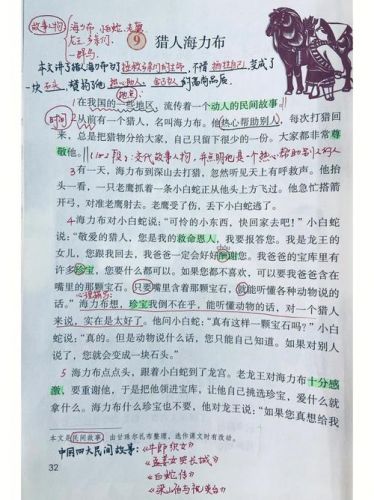 故事人物 海力布 小白蛇、老鹰
龙王 乡亲们
一群鸟
9 猎人海力布
本文讲了猎人海力布为了拯救乡亲们的生命,不惜牺牲自己,变成了
一块石头,赞扬了他热心助人、舍己为人的高尚品质。
地点:
1在我国的一些地区,流传着一个动人的民间故事
时间
2从前有一个猎人,名叫海力布。他热心帮助别人,每次打猎回
来,总是把猎物分给大家,自己只留下很少的一份。大家都非常尊
敬他。(1-2段):交代故事人物,并点明他是一个热心帮助别人的人
3有一天,海力布到深山去打猎,忽然听见天上有呼救声。他抬
头一看,一只老鹰抓着一条小白蛇正从他头上方飞过。他急忙搭箭
开弓,对准老鹰射去。老鹰受了伤,丢下小白蛇逃了。
4海力布对小白蛇说:“可怜的小东西,快回家去吧!”小白蛇
说:“敬爱的猎人,您是我的救命恩人,我要报答您。我是龙王的
女儿,您跟我回去,我爸爸一定会好好酬谢您。我爸爸的宝库里有
许多珍宝,您要什么都可以。如果您都不喜欢,可以要我爸爸含在
嘴里的那颗宝石。只要嘴里含着那颗宝石,就能听懂各种动物说的
心理描写:
话。”海力布想,珍宝我倒不在乎,能听懂动物的话,对一个猎人
来说,实在是太好了。他问小白蛇:“真有这样一颗宝石吗?”小白
蛇说:“真的。但是动物说什么话,您只能自己知道。如果对别人
说了,您就会变成一块石头。”
5海力布点点头,跟着小白蛇到了龙宫。老龙王对海力布十分感
激,要重谢他,于是把他领进宝库,让他自己挑选珍宝,爱什么就
拿什么。海力布什么珍宝也不要,他对龙王说:“如果您真想给我
本文是民间故事,由甘珠尔扎布整理,选作课文时有改动。
32
中国四大民间故事:《牛郎织女》
《孟姜女哭长城》
《白蛇传》
《梁山伯与祝英台》